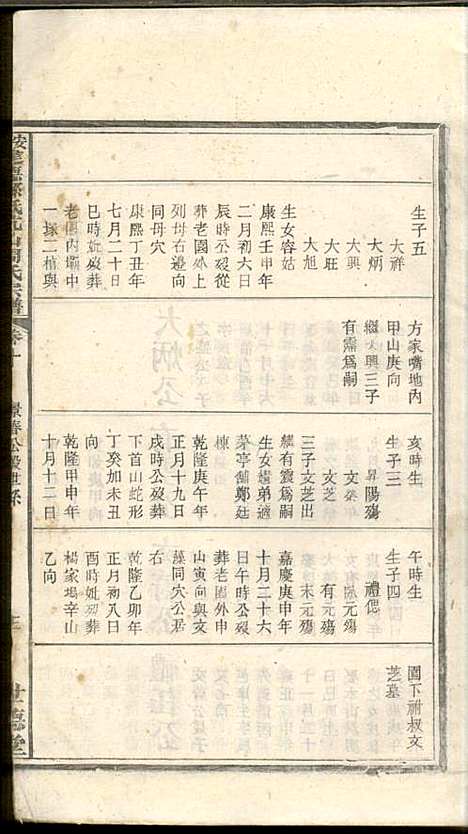 生子五
大祥
大炳
大興
大旺
大旭
生女容姑
康熙壬申年
二月初六日
辰時公殁從
葬老園外上
列母右邊向
同母穴
康熙丁丑年
七月二十日
巳時妣殁葬
老園內壩中
一塚二棺與
方家嘴地內
甲山庚向
繼大興三子
有霈爲嗣
亥時生
生子三
昇陽殤
文發
三子文芝出
繼有霞爲嗣
生女媢弟適
茅亭舖鄭廷
棟
乾隆庚午年
正月十九日
戌時公殁葬
下首山蛇形
丁癸加未丑
向
乾隆甲申年
十月十二日
午時生
生子四
禮偲
元殤
有元殤
末元殤
嘉慶庚申年
十月二十六
日午時公殁
葬老園外申
山寅向與文
藻同穴公居
右
乾隆乙卯年
正月初八日
酉時妣殁葬
楊家塲辛山
乙向
園下祔叔文
芝墓
卷一
景春公殁世系
世德堂